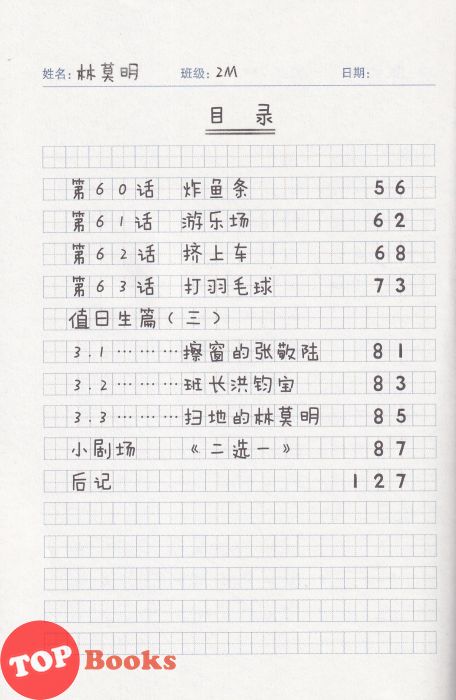 姓名: 林莫明 班级: 2M 日期:
目 录
第60话 炸鱼条 56
第61话 游乐场 62
第62话 挤上车 68
第63话 打羽毛球 73
值日生篇(三)
3.1………擦窗的张敬陆 81
3.2………班长洪钧宝 83
3.3………扫地的林莫明 85
小剧场 《二选一》 87
后记 127
TOP Books